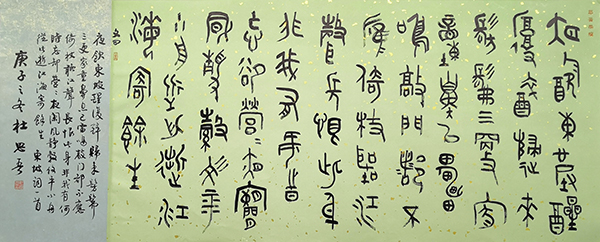 夜飲東坡醒
復醉歸來
髣髴三更家
童鼻息已雷
鳴敲門都不
應倚杖聽江
聲長恨此身
非我有何時
忘卻營營夜闌
風靜縠紋平
小舟從此逝江
海寄餘生
夜飲東坡醒復醉歸來髣髴
三更家童鼻息已雷鳴敲門都不應
倚杖聽江聲長恨此身非我有何
時忘卻營營夜闌風靜縠紋平小舟
從此逝江海寄餘生 東坡詞一首
庚子之冬杜